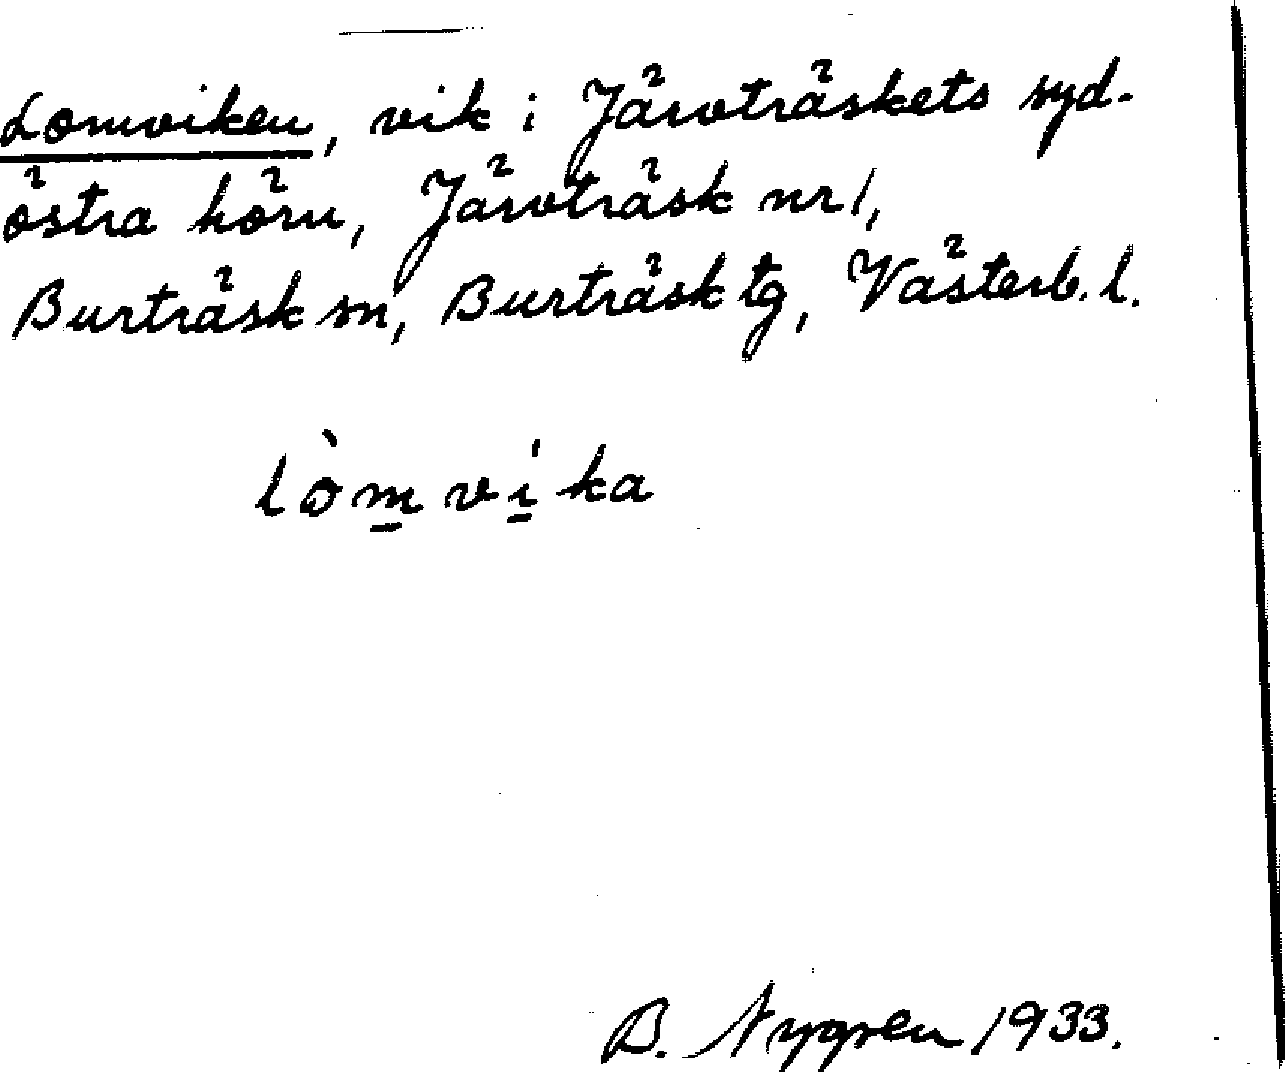 Lomviken, vik i Järvträskets syd-
östra hörn, Järvträsk nr 1,
Burträsk sn, Burträsk tg, Västerb. l.
lòm̲ví̲ka
B. Nygren 1933.